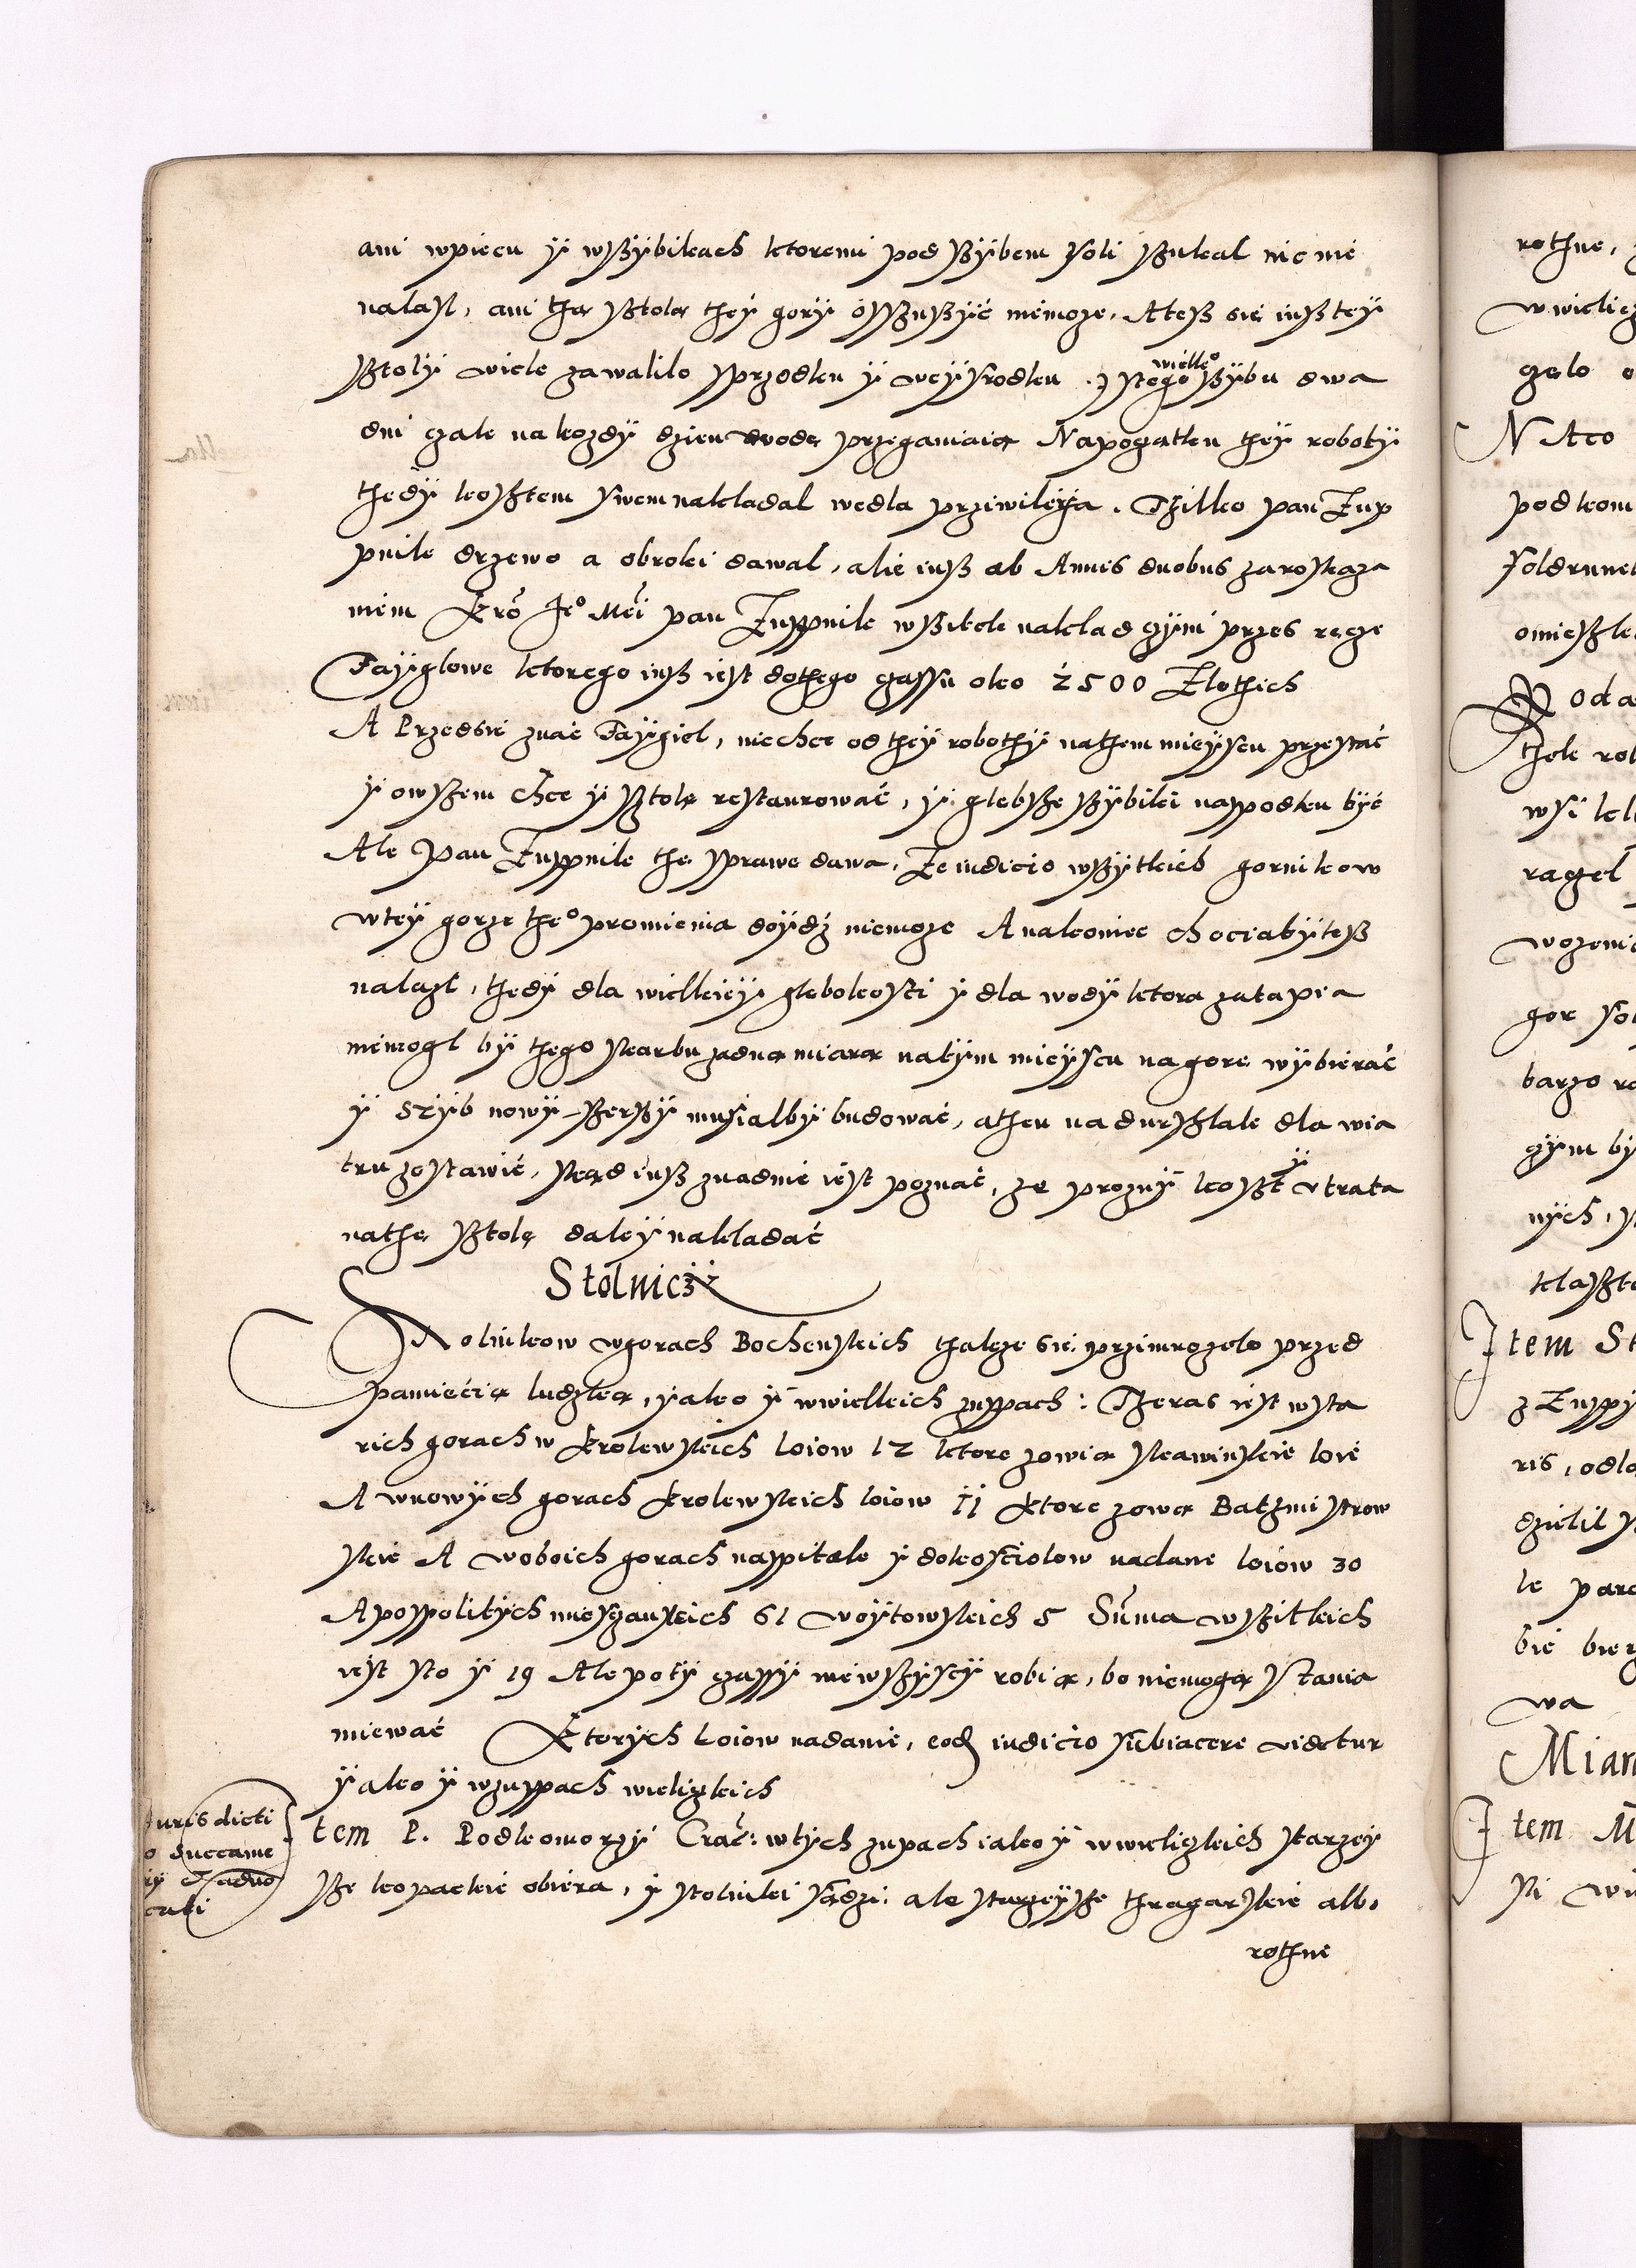 ani wpiecu ÿ wßÿbikach ktoremi pod ßÿbem soli ßukal nic nie
nalasl, ani tha ßtola theÿ gorÿ ossußÿć niemoże. Atesz sie iusz teÿ
ßtolÿ wiele zawalilo sprzodku ÿ weÿsrodku. stego wielkieº ßÿbu dwa
dni czale nakozdÿ dzien wode przeganiaia Napoczatku theÿ robotÿ
thedÿ kosztem swem nakladal wedla prziwileÿa. Thilko pan Zup
pnik drzewo a obroki dawal, alie iusz ab Annis duobus zaroskaza
niem Kro Jeº Mci pan Zuppnik wßitek naklad czÿni przes recze
Faÿglowe ktorego iusz iest dothego czassu oko 2500 Zlothich
A Przedsie znać Faÿgiel, niechce od theÿ robothÿ nathem mieÿscu przestać
ÿ owszem chce ÿ ßtole restaurować, ÿ glebsze ßÿbiki naspodku bÿć
Ale Pan Zuppnik the sprawe dawa, Ze iudicio wßÿtkich gornikow
wteÿ gorze theº promienia doÿdź niemoze A nakoniec chociabÿ tesz
nalazl, thedÿ dla wielkieÿ glebokości ÿ dla wodÿ ktora zatapia
niemogl bÿ thego skarbu zadna miara natÿm mieÿscu nagore wÿbierać
ÿ szÿb nowÿ szerszÿ musialbÿ budować, a then na durszlak dla wia
tru zostawić, skad iusz znadnie iest poznać, ze proznÿ koszt ÿ vtrata
nathe ßtole daleÿ nakladać
Stolniczÿ
Stolnikow wgorach Bochenskich thakze sie przimrozelo przed
pamiecia ludzka, ÿako ÿ wwielkich zuppach: Theras iest wsta
rich gorach w Krolewskich loiow 12 ktore zowia skawinskie loie
A wnowÿch gorach Krolewskich loiow 11 Ktore zowa Batzmistrow
skie A woboich gorach naspitale ÿ dokosciolow nadane loiow 30
A pospolitÿch miesczanskich 61 woÿtowskich 5 Suma wßitkich
iest sto ÿ 19 Ale potÿ czassÿ niewszÿscÿ robia, bo niemoga stania
miewać Ktorÿch Loiow nadanie, eodem iudicio subiacere videtur
ÿako ÿ wzuppach wieliczkich
Jurisdicti
o Succame
rÿ et advo
cati
Item P. Podkomorzÿ Crac: wtÿch zupach iako ÿ wwieliczkich starzeÿ
sze kopackie obiera, ÿ stolniki sadzi ale starzeÿsze thragarskie alb,
rothne
rothne,
wwielicz
zelo o
N Aco
podkom
soldrunek
omieszk
Poda
thek rob
wsi kl
razel
wozenie
gor sol
barzo ro
czÿm bÿ
nÿch,
klaszt
Item St
z Zuppÿ
ris, odlo
dzielil
le paro
bie bierz
wa
Miar
Item M
sti wi